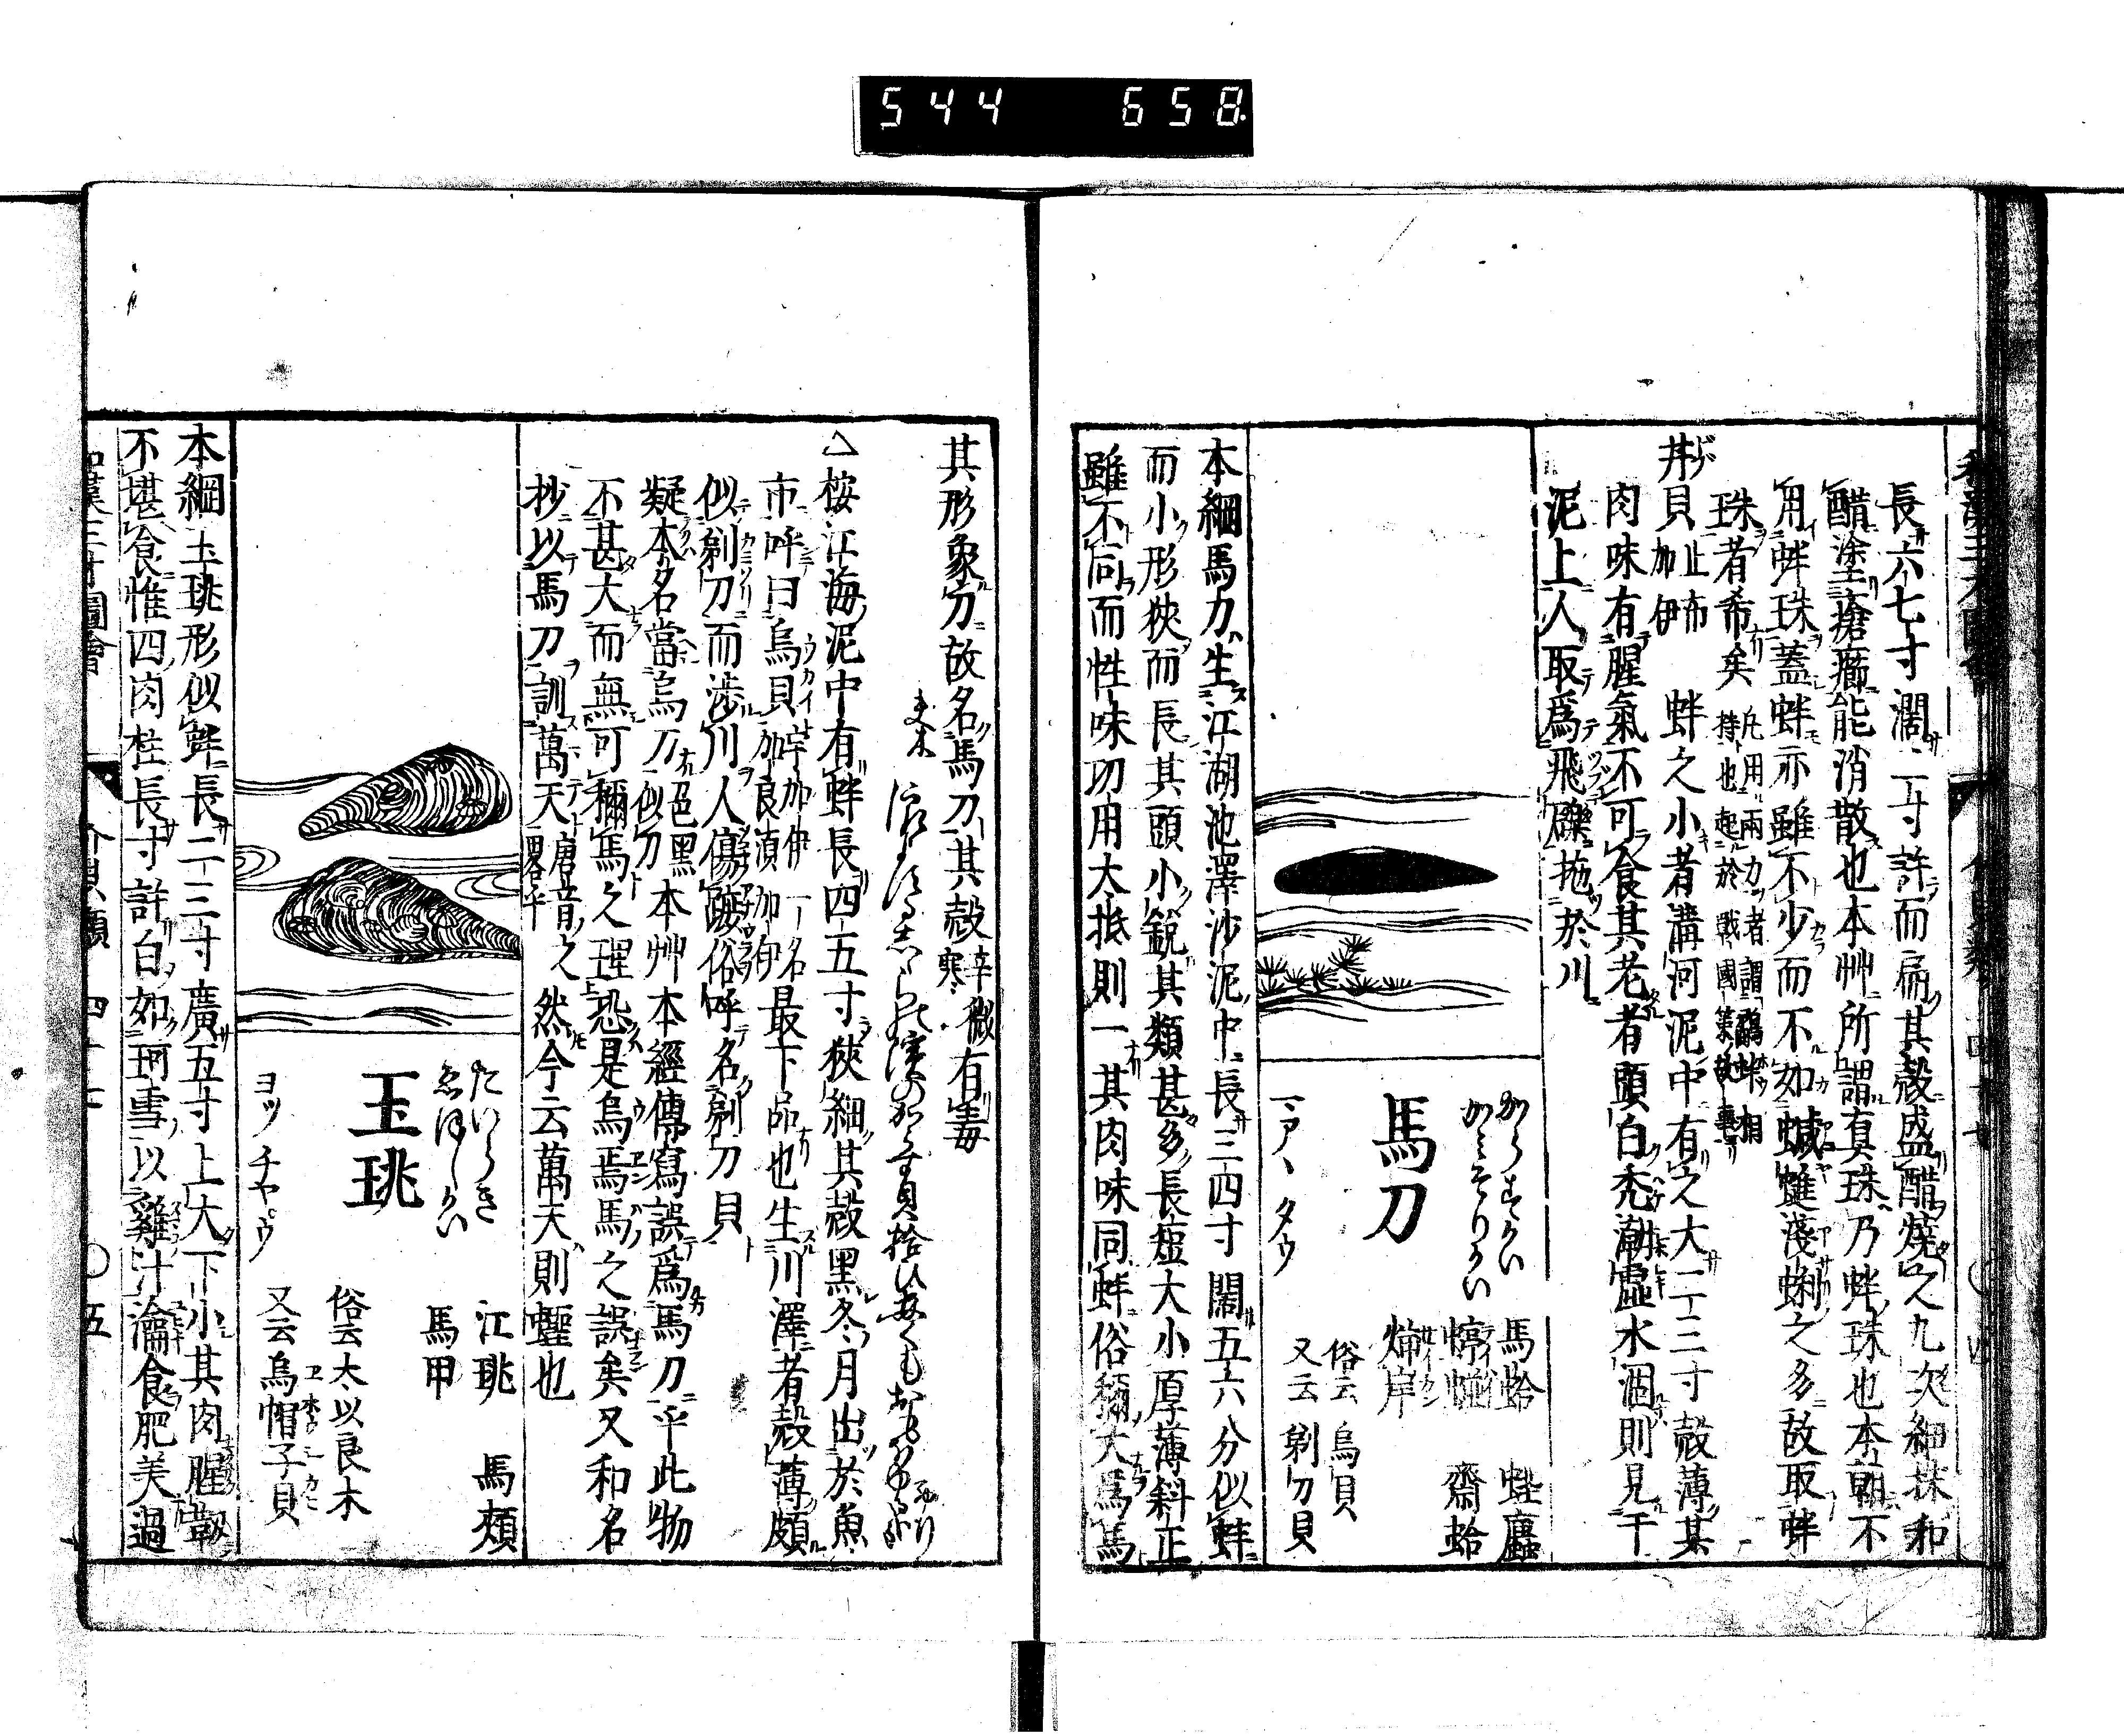 544 658
長六七寸濶二寸許而扁其殻盛醋燒之九次細抹和
醋塗瘡癤能消散也本艸所謂真珠乃蚌珠也本朝不
用蚌珠蓋蚌亦雖不少而不如蝛蛽淺蜊之多故取蚌
珠者希矣
凡用兩刀者謂鷸蚌相
持也起於戰國策故事
丼貝 止布加伊 蚌之小者溝河泥中有之大二三寸殻薄其
肉味有腥氣不可食其老者頭白禿潮虛水涸則見干
泥上人取爲飛礫拖於川
からすかい
かみそりかい
馬刀
マアヽ タウ
馬蛤 蛙䗯
齋蛤
俗云烏貝
又云剃刀貝
本綱馬刀生江湖池澤沙泥中長三四寸闊五六分似蚌
而小形狹而長其頭小銳其類甚多長短大小厚薄斜正
雖不同而性味功用大抵則一其肉味同蚌俗稱大爲馬
其形象刀故名馬刀其殻 辛微寒 有毒
△按江海泥中有蚌長四五寸狹細其殻黑冬月出於魚
市呼曰烏貝 最下品也生川澤者殻薄頗
似剃刀而渉川人傷蹠俗呼名剃刀貝
疑本名當烏刀 色黑似刀 本艸本經傳寫誤爲馬刀乎此物
不甚大而無可稱馬之理恐是烏焉馬之誤矣又和名
抄以馬刀訓萬天 唐音之畧乎 然今云萬天則蟶也
たいらき
ゑぼしかい
玉珧
ヨッ チヤ゜ウ
江珧 馬頰
馬甲
俗云太以良木
又云烏帽子貝
本綱玉珧形似蚌長二三寸廣五寸上大下小其肉腥韌
不堪食惟四肉柱長寸許白如珂雪以雞汁瀹食肥美過
和漢三才圖會 介貝類 四十七 〇五